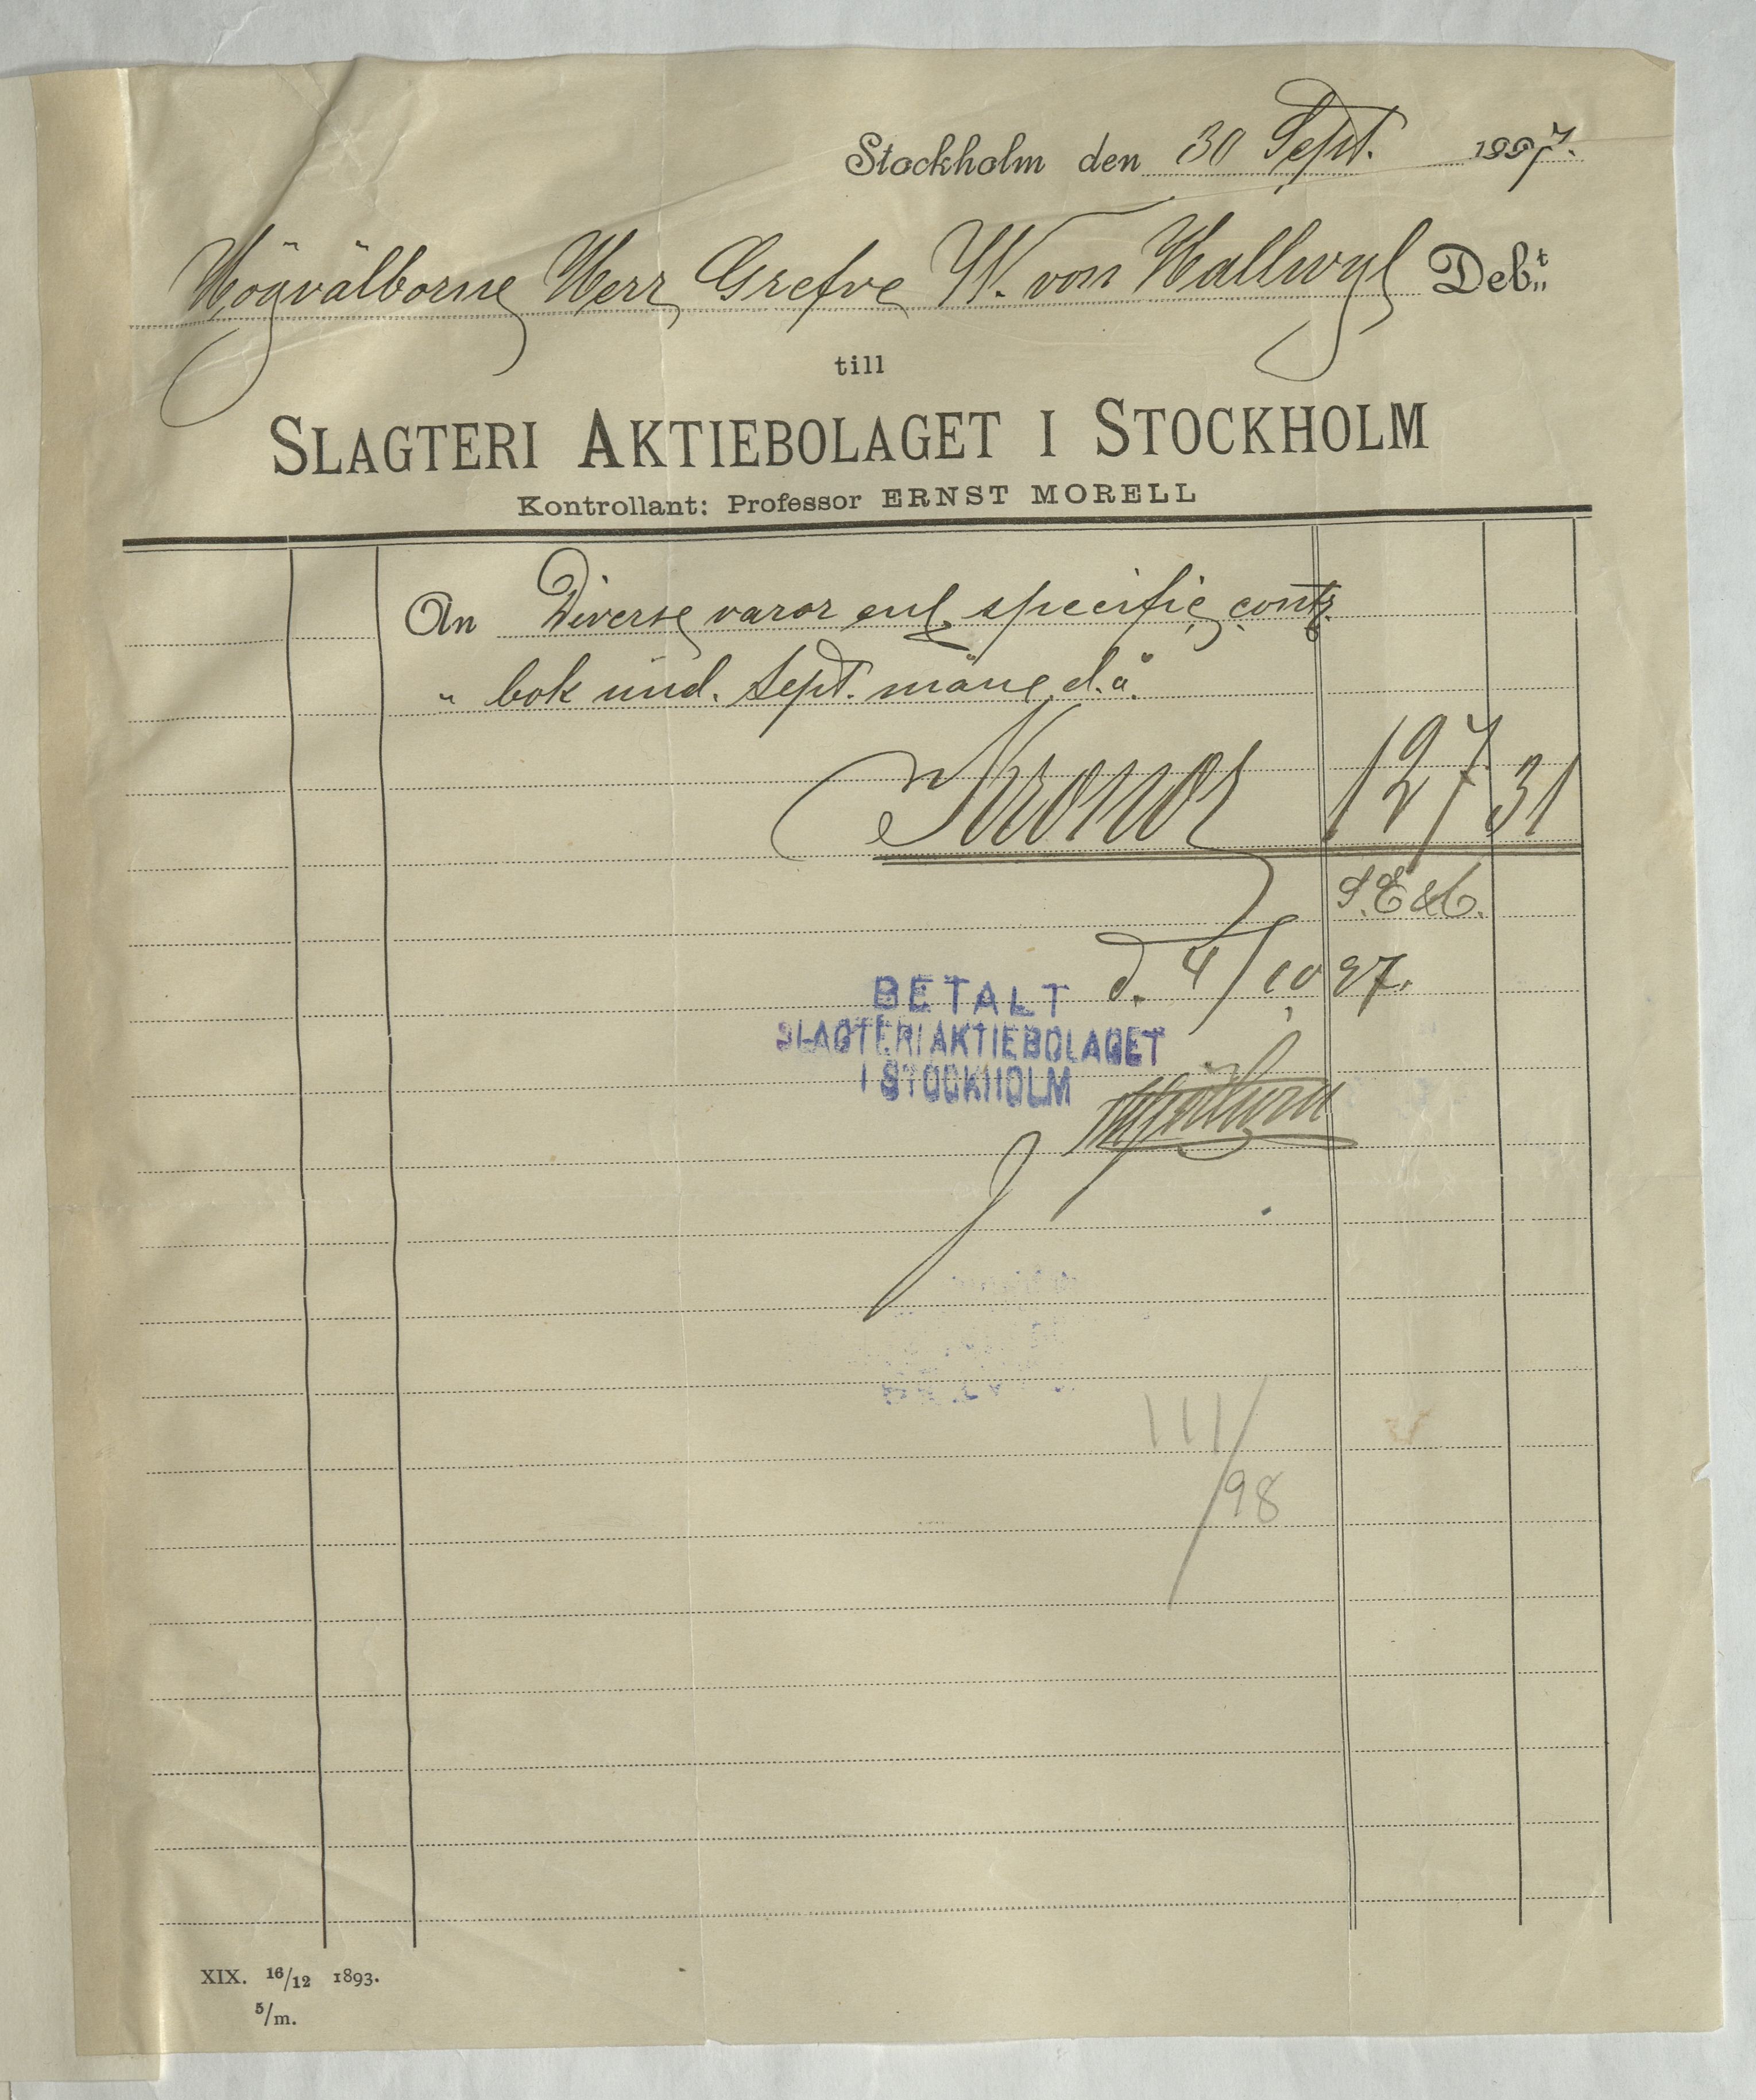 Stockholm den 30 Sept. 1897.
Högvälborne Herr Grefve W. von Hallwyl Deb:t
till
SLAGTERI AKTIEBOLAGET I STOCKHOLM
Kontrollant: Professor ERNST MORELL
An Diverse varor enl. specific. contr.
" bok und. Sept. mån. d.å.
Kronor 127 31
S.E&O.
d. 4/10 97.
BETALT
SLAGTERIAKTIEBOLAGET
I STOCKHOLM
111/98
XIX. 16/12 1893.
5/m.